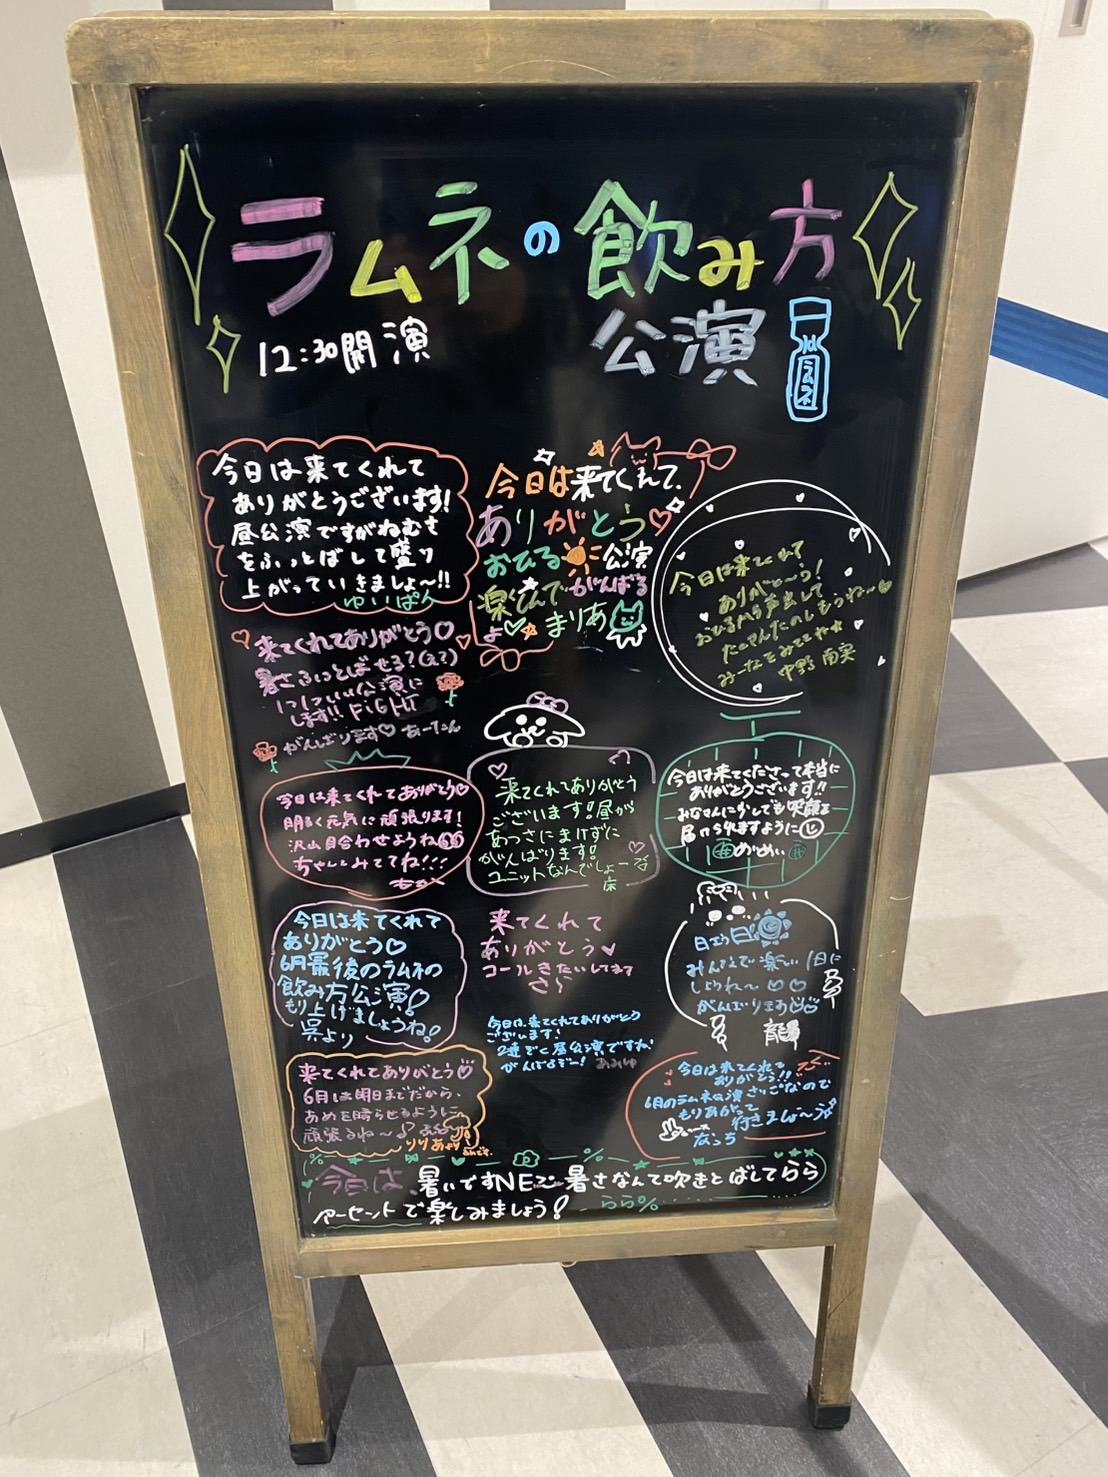 ラムネの飲み方
公演
12:30開演
ラムネ
今日は来てくれて
ありがとうございます!
昼公演ですがねむさ
をふっとばして盛り
上がっていきましょ〜!!
ゆいぱん
今日は来てくれて、
ありがとう♡
おひる☀公演
楽しんでがんばる
よ♡ まりあ
今日は来てくれて
ありがと〜う!
おひるから声出して
たのしもうね〜
みーなをみててね☆
中野 南実
来てくれてありがとう♡
暑さふっとばせる?(え?)
くらいいい公演に
します!! FiGHT
がんばります♡ あーたん
今日は来てくれてありがとう♡
明るく元気に頑張ります!
沢山目合わせようね
ちゃんとみててね!!!
来てくれてありがとう
ございます!昼から
あつさにまけずに
がんばります!
ユニットなんでしょーる
今日は来てくださって本当に
ありがとうございます!!
みなさんに少しでも笑顔を
届けられますように
めいめい
今日は来てくれて
ありがとう♡
6月最後のラムネの
飲み方公演!
もり上げましょうね!
呉より
来てくれて
ありがとう♥
コールききたいしてます
さら
みんなで楽しい1日に
しようね〜♡♡
がんばりまあ
今日は来てくれてありがとう
ございます!
2連ぞく昼公演ですね!
がんばるぞー! あみゆ
来てくれてありがとう♡
6月は明日までだから、
あめを晴らせるように
頑張るね〜♪
りりあより
今日は来てくれて
ありがとう!!
6月のラムネ公演さいごなので
もりあがって
行きましょ〜う
なっち
今日は、暑いですNEで 暑さなんて吹きとばしてらら
パーセントで楽しみましょう!
らら%